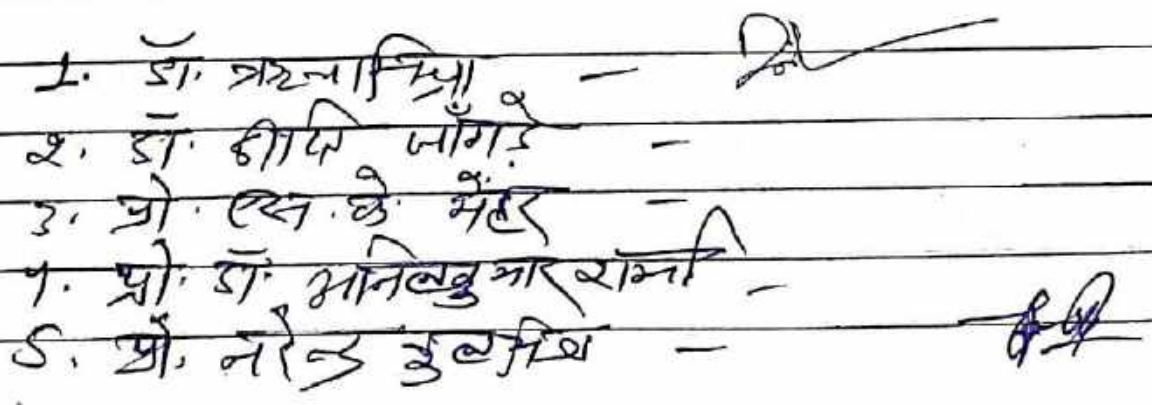 1. डॉ. रत्ना मिश्रा -
2. डॉ. जाँगड़े -
3. प्रो. एस. के. मेहर -
4. प्रो. डॉ. अनिल कुमार शर्मा -
5. प्रो. नरेन्द्र कुलमित्र -